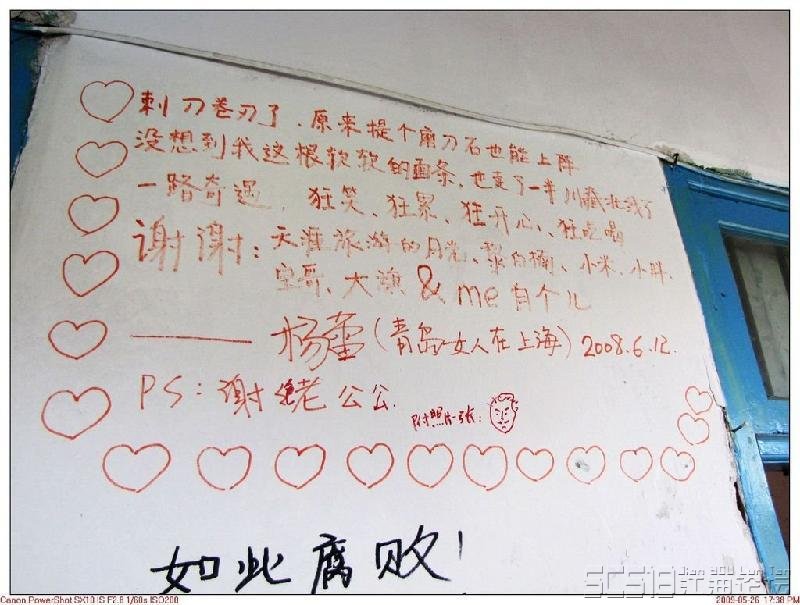 刺刀卷刃了．原来提个磨刀石也能上阵
没想到我这根软软的面条、也走了一半川藏北线了
一路奇遇、狂笑、狂累、狂开心、狂吃喝
谢谢：天涯旅游的月光、黎白桷、小米、小胖、
空哥、大渔&me自个儿
——杨蕾（青岛女人在上海）2008.6.12.
PS：谢老公公.
附照片一张：
如此腐败！
Canon PowerShot SX10 IS F2.8 1/60s ISO200
2009-05-26 17:38 PM